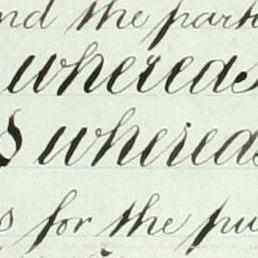 nd the part
whereas
whereas
s for the pu